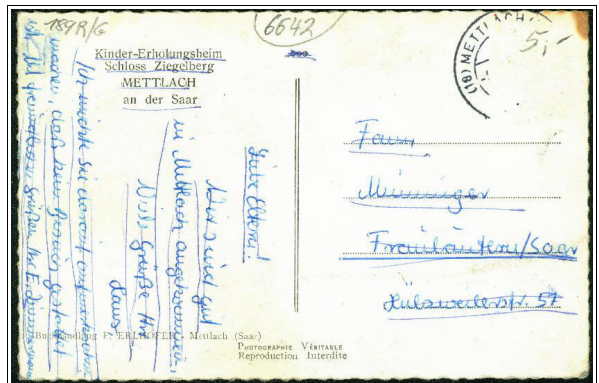 189R/G
6642
5,-
(18) METTLACH
Kinder-Erholungsheim
Schloss Ziegelberg
METTLACH
an der Saar
Liebe Eltern!
Wir sind gut
in Mettlach angekommen,
Viele Grüße Ihr
Claus
Ich möchte Sie darauf aufmerksam
machen, daß kein Besuch gestattet
ist. Mit freundlichen Grüßen
Fam.
Minninger
Fraulautern/Saar
Hülzweilerstr. 57
Buchhandlung F. ERLHÖFER - Mettlach (Saar)
PHOTOGRAPHIE VÉRITABLE
Reproduction Interdite